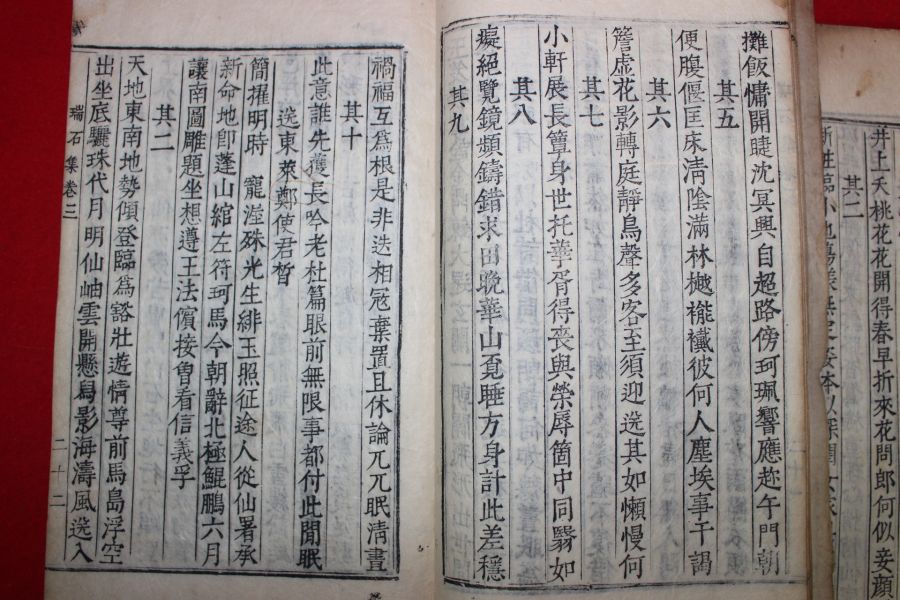 井上夭桃花花開得春早折來花問郎何似妾顔
其二
攤飯慵開睫沈冥興自超路傍珂珮響應趁午門朝
其五
便腹偃匡床淸陰滿林樾襱襶彼何人塵埃事干謁
其六
簷虛花影轉庭靜鳥聲多客至須迎送其如懶慢何
其七
小軒展長簟身世托華胥得喪與榮辱箇中同翳如
其八
癡絕覽鏡頻鑄錯求田晩華山覓睡方身計此差穩
其九
禍福互爲根是非迭相冦棄置且休論兀兀眠淸晝
其十
此意誰先獲長吟老杜篇眼前無限事都付此閒眠
送東萊鄭使君晳
簡擢明時寵渥殊光生緋玉照征途人從仙署承
新命地卽蓬山綰左符珂馬今朝辭北極鯤鵬六月
讓南圖雕題坐想遵王法儐接曾看信義孚
其二
天地東南地勢傾登臨爲豁壯遊情尊前馬島浮空
出坐底驪珠代月明仙岫雲開懸舄影海濤風送入
瑞石集卷三
二十二